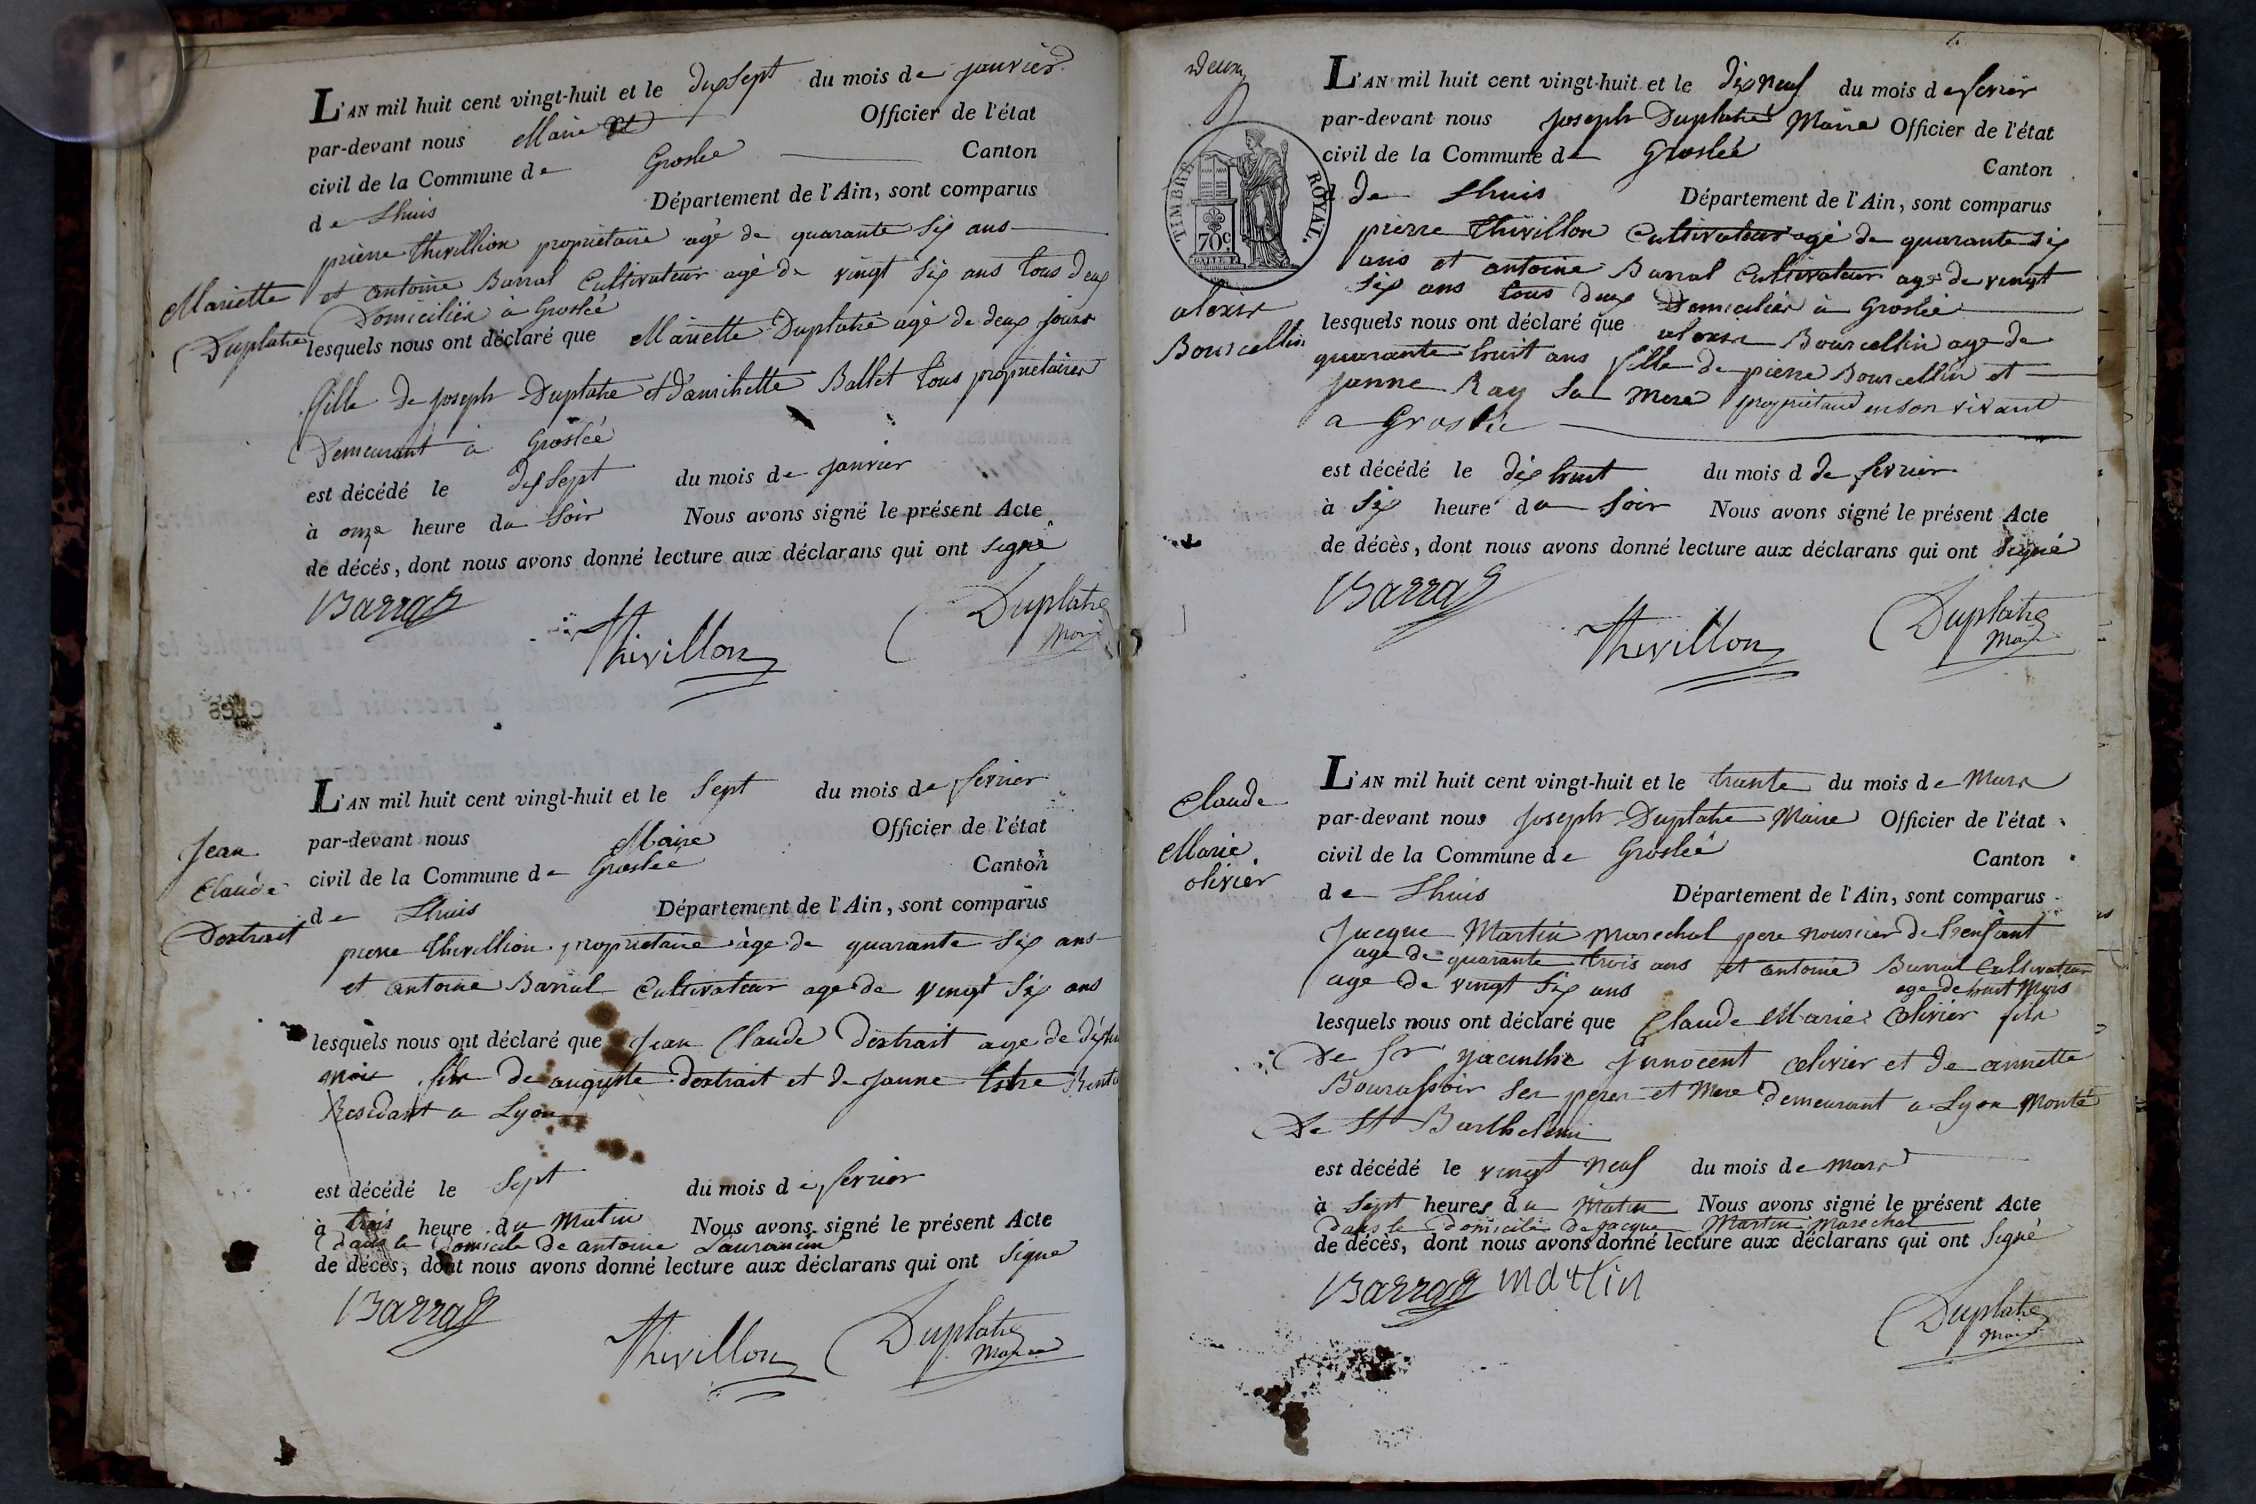 L'AN mil huit cent vingt-huit et le dixsept du mois de janvier
par-devant nous Maire Officier de l'état
civil de la Commune de Groslée Canton
de Lhuis Département de l'Ain, sont comparus
pierre thivillion propriétaire agé de quarante six ans
et antoine Barral Cultivateur agé de vingt six ans tous deux
Domiciliés à Groslée
Mariette
Duplatre
lesquels nous ont déclaré que Mariette Duplatre agé de deux jours
fille de joseph Duplatre et d'annichette Ballet tous propriétaires
Demeurant à Groslée
est décédé le dixsept du mois de janvier
à onze heure du Soir Nous avons signé le présent Acte
de décès, dont nous avons donné lecture aux déclarans qui ont signé
Barral
Thivillon
Duplatre
Maire
L'AN mil huit cent vingt-huit et le Sept du mois de fevrier
par-devant nous Maire Officier de l'état
civil de la Commune de Groslee Canton
de Lhuis Département de l'Ain, sont comparus
Jean
Claude
Dextrait
pierre thivillion propriétaire àge de quarante six ans
et antoine Barral Cultivateur age de vingt six ans
lesquels nous ont déclaré que Jean Claude dextrait age de
mois fils de auguste dextrait et de janne
Residant a Lyon
est décédé le Sept du mois de fevrier
à trois heure du Matin Nous avons signé le présent Acte
dans le Domicile De antoine Laurancin
de décès, dont nous avons donné lecture aux déclarans qui ont Signé
Barral
Thivillon
Duplatre
Maire
Deux
TIMBRE ROYAL.
70 c.
L'AN mil huit cent vingt-huit et le dix neuf du mois de fevrier
par-devant nous joseph Duplatre Maire Officier de l'état
civil de la Commune de Groslée Canton
de Lhuis Département de l'Ain, sont comparus
pierre thivillon Cultivateur agé de quarante six
ans et antoine Barral Cultivateur agé de vingt
six ans tous deux Domiciliés à Groslée
alexis
Bourcellin
lesquels nous ont déclaré que alexis Bourcellin age de
quarante huit ans fille de pierre Bourcellin et
janne Ray sa mere propriétaire en son vivant
a Groslée
est décédé le dix huit du mois d de fevrier
à Six heure du Soir Nous avons signé le présent Acte
de décès, dont nous avons donné lecture aux déclarans qui ont signé
Barral
Thivillon
Duplatre
Maire
L'AN mil huit cent vingt-huit et le trante du mois de Mars
par-devant nous joseph Duplatre Maire Officier de l'état
civil de la Commune de Groslée Canton
de Lhuis Département de l'Ain, sont comparus
Claude
Marie
olivier
Jacque Martin marechal pere nouricier de l'enfant
age de quarante trois ans et antoine Barral Cultivateur
age de vingt six ans
age de huit Mois
lesquels nous ont déclaré que Claude Marie Olivier fils
De Sr yacinthe Jnnocent olivier et de annette
ses peres et Mere demeurant a Lyon Monté
De St Barthelemi
est décédé le vingt neuf du mois de mars
à Sept heures du Matin Nous avons signé le présent Acte
dans le domicile de jacque Martin Marechal
de décès, dont nous avons donné lecture aux déclarans qui ont Signé
Barral
martin
Duplatre
Maire